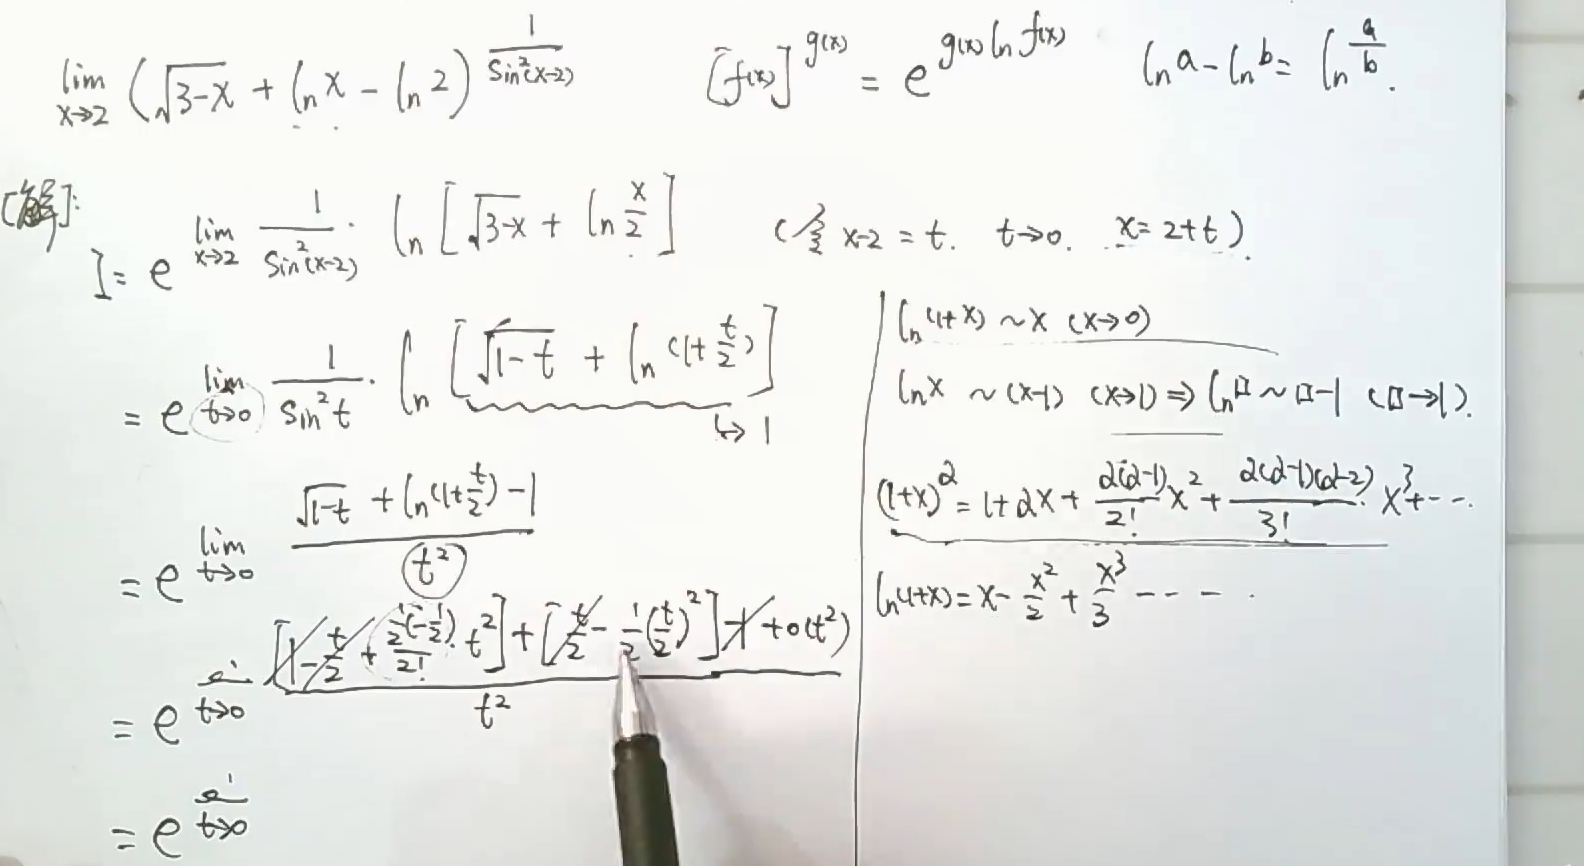 lim x→2 (√3-x + ln x - ln 2)^(1/sin²(x-2))    [f(x)]^g(x) = e^(g(x) ln f(x))    ln a - ln b = ln a/b.
[解]:
I = e^(lim x→2 1/sin²(x-2) · ln[√3-x + ln x/2])    (令 x-2 = t. t→0. x = 2+t).
= e^(lim t→0 1/sin²t · ln[√1-t + ln(1+t/2)])
↳ 1
= e^(lim t→0 (√1-t + ln(1+t/2) - 1)/t²)
= e^(t→0 ([1 - t/2 + (1/2(-1/2)/2!)·t²] + [t/2 - 1/2(t/2)²] - 1 + o(t²))/t²)
= e^(t→0)
ln(1+x) ~ x (x→0)
ln x ~ (x-1) (x→1) ⇒ ln□ ~ □-1 (□→1).
(1+x)^α = 1 + αx + α(α-1)/2! x² + α(α-1)(α-2)/3! x³ + ...
ln(1+x) = x - x²/2 + x³/3 - - - .